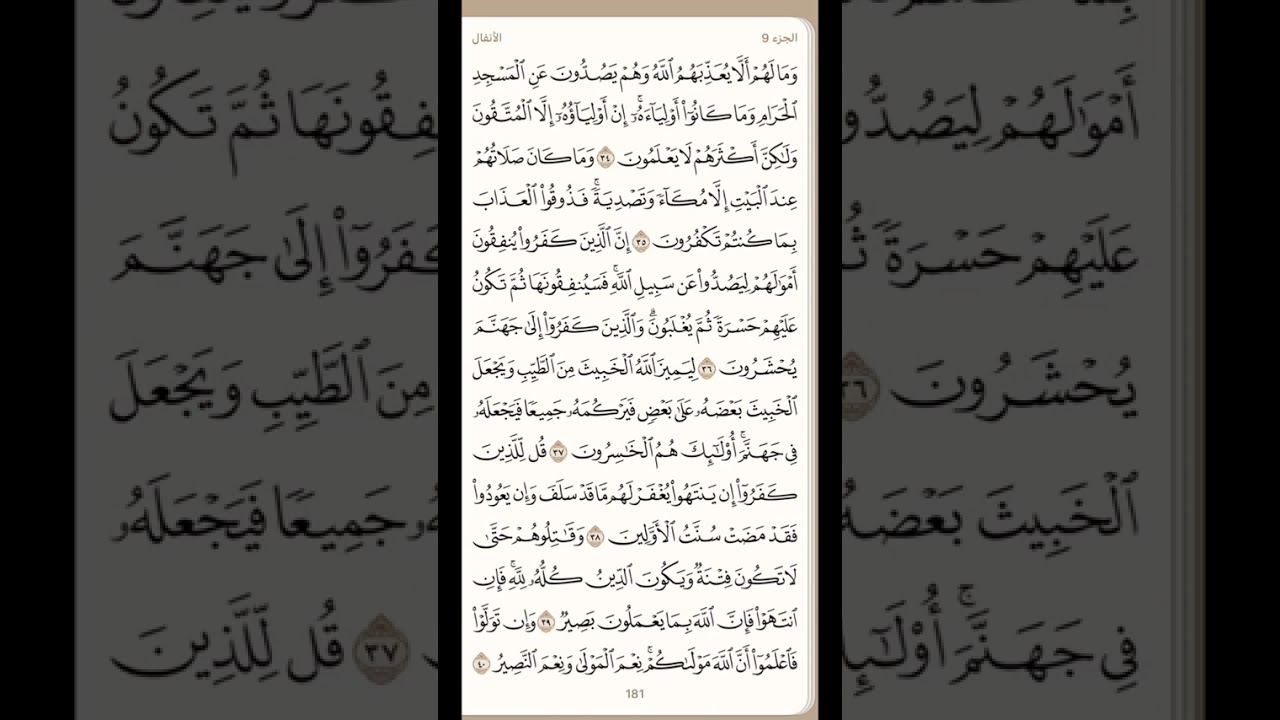 الجزء 9
الأنفال
وَمَا لَهُمْ أَلَّا يُعَذِّبَهُمُ ٱللَّهُ وَهُمْ يَصُدُّونَ عَنِ ٱلْمَسْجِدِ
ٱلْحَرَامِ وَمَا كَانُوٓا۟ أَوْلِيَآءَهُۥٓ ۚ إِنْ أَوْلِيَآؤُهُۥٓ إِلَّا ٱلْمُتَّقُونَ
وَلَٰكِنَّ أَكْثَرَهُمْ لَا يَعْلَمُونَ ٣٤ وَمَا كَانَ صَلَاتُهُمْ
عِندَ ٱلْبَيْتِ إِلَّا مُكَآءً وَتَصْدِيَةً ۚ فَذُوقُوا۟ ٱلْعَذَابَ
بِمَا كُنتُمْ تَكْفُرُونَ ٣٥ إِنَّ ٱلَّذِينَ كَفَرُوا۟ يُنفِقُونَ
أَمْوَٰلَهُمْ لِيَصُدُّوا۟ عَن سَبِيلِ ٱللَّهِ ۚ فَسَيُنفِقُونَهَا ثُمَّ تَكُونُ
عَلَيْهِمْ حَسْرَةً ثُمَّ يُغْلَبُونَ ۗ وَٱلَّذِينَ كَفَرُوٓا۟ إِلَىٰ جَهَنَّمَ
يُحْشَرُونَ ٣٦ لِيَمِيزَ ٱللَّهُ ٱلْخَبِيثَ مِنَ ٱلطَّيِّبِ وَيَجْعَلَ
ٱلْخَبِيثَ بَعْضَهُۥ عَلَىٰ بَعْضٍ فَيَرْكُمَهُۥ جَمِيعًا فَيَجْعَلَهُۥ
فِى جَهَنَّمَ ۚ أُو۟لَٰٓئِكَ هُمُ ٱلْخَٰسِرُونَ ٣٧ قُل لِّلَّذِينَ
كَفَرُوٓا۟ إِن يَنتَهُوا۟ يُغْفَرْ لَهُم مَّا قَدْ سَلَفَ وَإِن يَعُودُوا۟
فَقَدْ مَضَتْ سُنَّتُ ٱلْأَوَّلِينَ ٣٨ وَقَٰتِلُوهُمْ حَتَّىٰ
لَا تَكُونَ فِتْنَةٌ وَيَكُونَ ٱلدِّينُ كُلُّهُۥ لِلَّهِ ۚ فَإِنِ
ٱنتَهَوْا۟ فَإِنَّ ٱللَّهَ بِمَا يَعْمَلُونَ بَصِيرٌ ٣٩ وَإِن تَوَلَّوْا۟
فَٱعْلَمُوٓا۟ أَنَّ ٱللَّهَ مَوْلَىٰكُمْ ۚ نِعْمَ ٱلْمَوْلَىٰ وَنِعْمَ ٱلنَّصِيرُ ٤٠
181